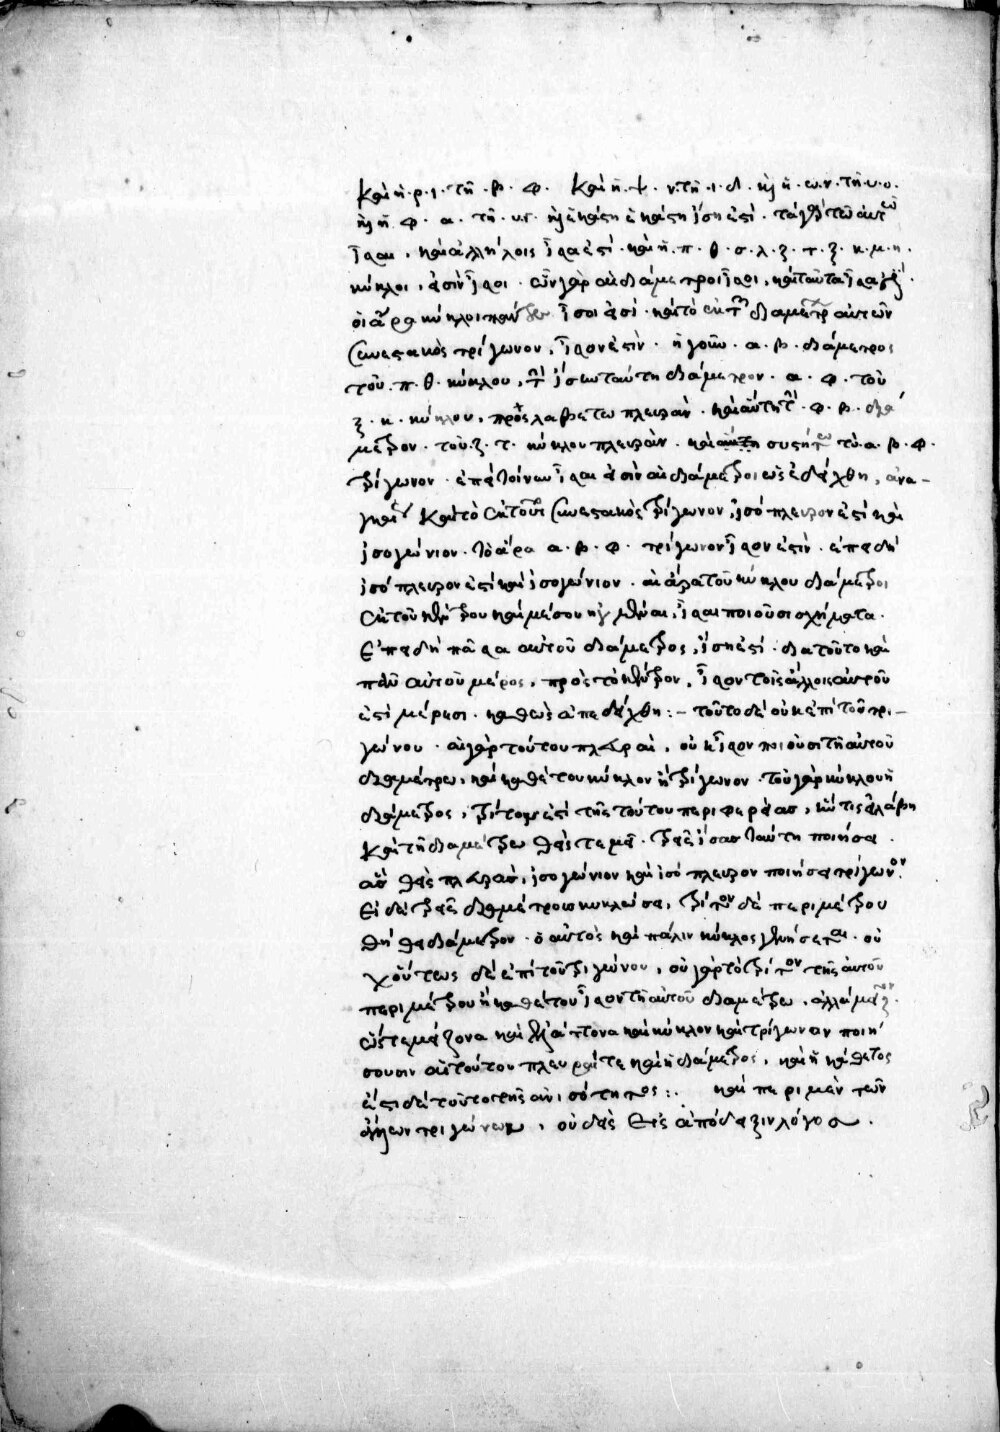 καὶ ἡ · ρ · ι · τῆ · β · φ · καὶ ἡ · ψ · ν · τῆ · ι · δ · καὶ ἡ · ω · ν · τῆ · υ · ο ·
καὶ ἡ φ · α · τῆ · υ · γ · καὶ ἑκάστη ἑκάστη ἴση ἐστί · τὰ
ἴσαι, καὶ ἀλλήλοις ἴσα ἐστί · καὶ ἡ · π · θ · σ · λ · ζ · τ · ξ · κ · μ · η ·
κύκλοι, εἰσὶν ἴσοι · ὧν γὰρ αἱ διάμετροι ἴσοι, καὶ ταῦτα ἴσα
οἱ ἄρα κύκλοι ἴσοι εἰσί · καὶ τὸ ἐκ τῶν διαμέτρων αὐτῶν
συνεστακὸς τρίγωνον, ἴσον ἐστὶν · ἡ γοῦν · α · β · διάμετρος
τοῦ · π · θ · κύκλου, τὴν ἴσην ταύτη διάμετρον · α · φ · τοῦ
ξ · κ · κύκλου, προσλαβέτω πλευρὰν · καὶ αὕτη τὴν · φ · β · διά
μετρον · τοῦ · ζ · τ · κύκλου πλευρὰν · καὶ συστήτω τὸ · α · β · φ ·
τρίγωνον · ἐπεὶ τοίνυν ἴσαι εἰσὶν αἱ διάμετροι ὡς ἐδείχθη, ἀνα-
γκαῖον καὶ τὸ ἐκ τούτων συνεστακὸς τρίγωνον, ἰσόπλευρον ἐστὶ καὶ
ἰσογώνιον · τὸ ἄρα α · β · φ · τρίγωνον ἴσον ἐστὶν · ἐπειδὴ
ἰσόπλευρον ἐστὶ καὶ ἰσογώνιον · αἱ ἄρα τοῦ κύκλου διάμετροι
ἐκ τοῦ κέντρου καὶ μέσου ἠγμέναι, ἴσαι ποιοῦσι σχήματα ·
Ἐπειδὴ πᾶσα αὐτοῦ διάμετρος, ἴση ἐστί · διὰ τοῦτο καὶ
πᾶν αὐτοῦ μέρος, πρὸς τὸ κέντρον, ἴσον τοῖς ἄλλοις αὐτοῦ
ἐστὶ μέρεσι · καθὼς ἀπεδείχθη :- τοῦτο δὲ οὐκ ἐπὶ τοῦ τρι-
γώνου · αἱ γὰρ τούτου πλευραὶ, οὐκ ἴσον ποιοῦσι τῆ αὐτοῦ
διαμέτρω, καὶ καθέτου κύκλον ἢ τρίγωνον · τοῦ γὰρ κύκλου ἡ
διάμετρος, τρίτον ἐστὶ τῆς τούτου περιφερείας, κἄν τις λάβη
καὶ τῆ διαμέτρω θεὶς τεμεῖ · τρεῖς ἴσας ταύτη ποιήσει ·
ἃς θεὶς πλευρὰς, ἰσογώνιον καὶ ἰσόπλευρον ποιήσει τρίγωνον ·
εἰ δὲ τρεῖς διαμέτροις κυκλώσει, τρίτον δὲ περιμέτρου
θήσει διάμετρον · ὁ αὐτὸς καὶ πάλιν κύκλος γενήσεται · οὐ
χ οὕτως δὲ ἐπὶ τοῦ τριγώνου, οὐ γὰρ τὸ τρίτον τῆς αὐτοῦ
περιμέτρου ἢ καθέτου ἴσον τῆ αὐτοῦ διαμέτρω, ἀλλὰ μεῖζον ·
ὥστε μείζονα καὶ ἐλάττονα καὶ κύκλον καὶ τρίγωνον ποιή
σουσιν αἱ τούτου πλευραί τε καὶ ἡ διάμετρος, καὶ ἡ κάθετος
ἔστι δὲ τοῦτο τῆς ἀνισότητος :. καὶ περὶ μὲν τῶν
τριγώνων, οὐδεὶς εἰς ἀπόδειξιν λόγος.